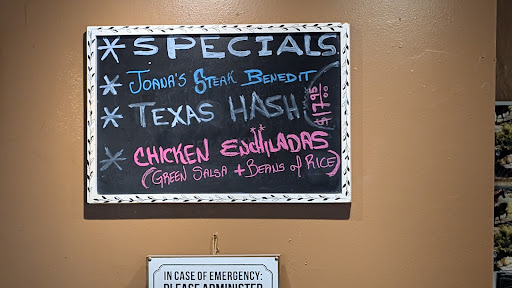 * SPECIALS
* JOANA'S STEAK BENEDIT
* TEXAS HASH
$17.95
* CHICKEN ENCHILADAS
(GREEN SALSA + BEANS & RICE)
IN CASE OF EMERGENCY:
PLEASE ADMINISTER